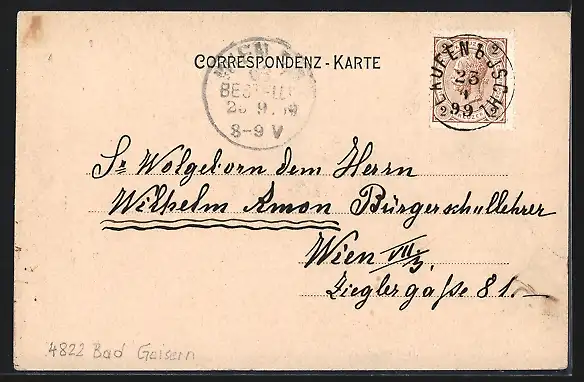 CORRESPONDENZ-KARTE
WIEN
BESTELLT
8-9 V
LAUFEN B/ISCHL
25
9
99
2 2
2 2
Sr Wolgeborn dem Herrn
Wilhelm Amon Bürgerschullehrer
Wien VII/3,
Zieglergaße 81.—
4822 Bad Goisern